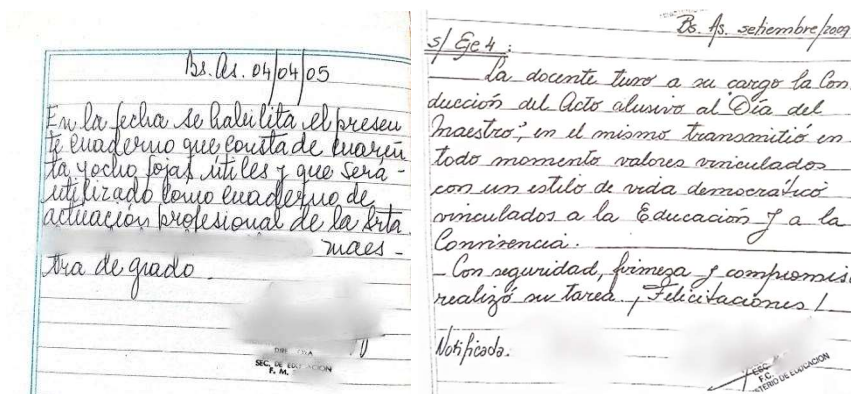 Bs. As. 04/04/05
En la fecha se habilita el presen
te cuaderno que consta de cuaren
ta y ocho fojas útiles y que será -
utilizado como cuaderno de
actuación profesional de la srta
maes -
tra de grado.
SEC. DE EDUCACION
F. M.
Bs. As. setiembre/2009
s/ Eje 4 :
La docente tuvo a su cargo la Con
ducción del Acto alusivo al "Día del
Maestro", en el mismo transmitió en
todo momento valores vinculados
con un estilo de vida democrático
vinculados a la Educación y a la
Convivencia.
- Con seguridad, firmeza y compromiso
realizó su tarea. ¡Felicitaciones!
Notificada.
ESC.
F.C.
MINISTERIO DE EDUCACION